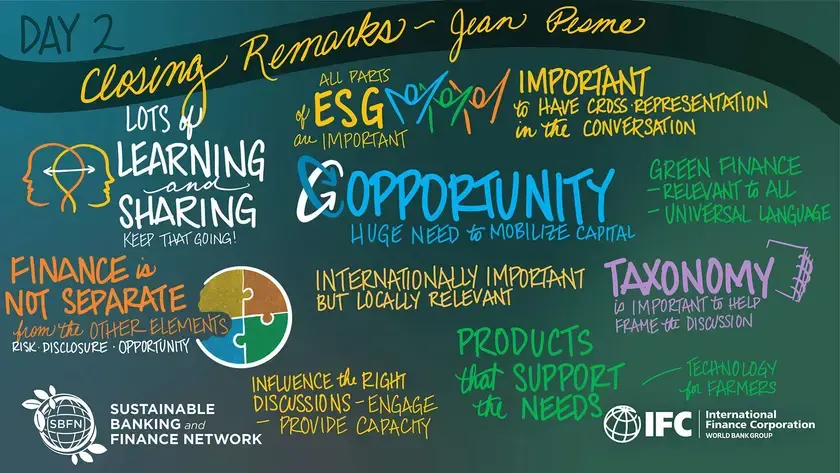 DAY 2
Closing Remarks - Jean Pesme
LOTS of
LEARNING
and
SHARING
KEEP THAT GOING!
ALL PARTS
of ESG
are IMPORTANT
IMPORTANT
to HAVE CROSS-REPRESENTATION
in the CONVERSATION
OPPORTUNITY
HUGE NEED to MOBILIZE CAPITAL
GREEN FINANCE
- RELEVANT to ALL
- UNIVERSAL LANGUAGE
FINANCE is
NOT SEPARATE
from the OTHER ELEMENTS
RISK · DISCLOSURE · OPPORTUNITY
INTERNATIONALLY IMPORTANT
BUT LOCALLY RELEVANT
TAXONOMY
is IMPORTANT to HELP
FRAME the DISCUSSION
INFLUENCE the RIGHT
DISCUSSIONS - ENGAGE
- PROVIDE CAPACITY
PRODUCTS
that SUPPORT
the NEEDS
- TECHNOLOGY
for FARMERS
SBFN
SUSTAINABLE
BANKING and
FINANCE NETWORK
IFC
International
Finance Corporation
WORLD BANK GROUP